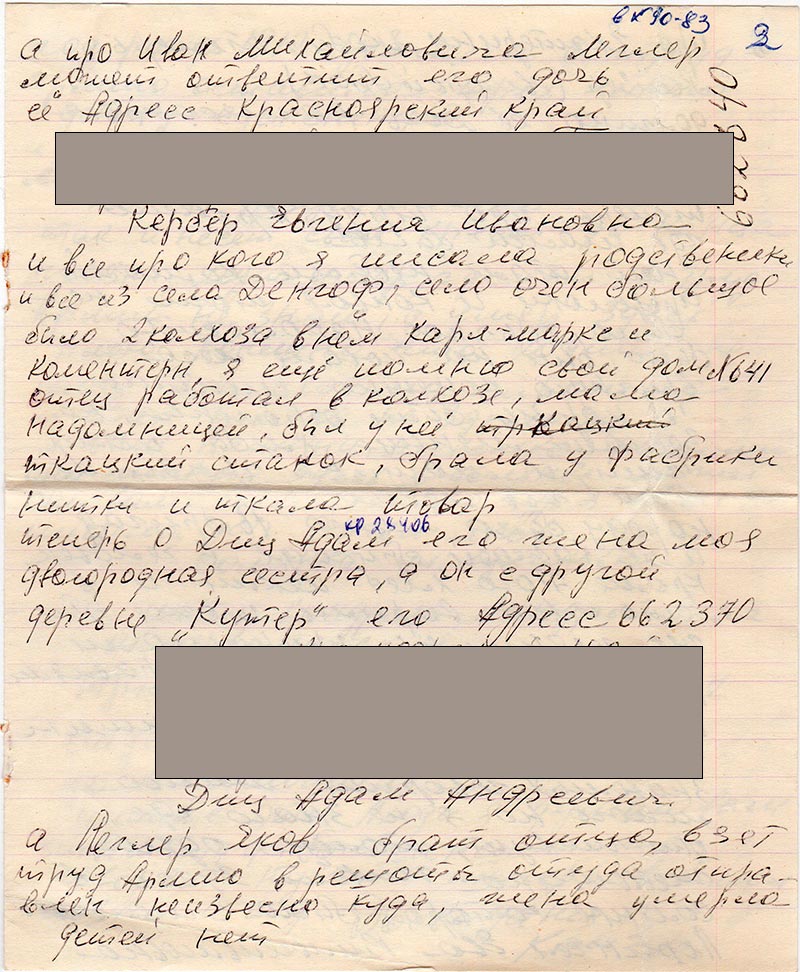 вк90-83
2
а про Иван Михайловича Реглер
может ответит его дочь
её Адресс Красноярский край
662840
Кербер Евгения Ивановна
и все про кого я писала родственики
и все из села Денгоф, село очен большое
было 2 колхоза в нём Карл-маркс и
коментерн, я ещё помню свой дом №641
отец работал в колхозе, мама
надомницей, был у неё тркацкий
ткацкий станок, брала у фабрики
нитки и ткала товар
кр 28406
теперь о Диц Адам его жена моя
двоюродная сестра, а он с другой
деревне "Кутер" его Адресс 662370
Диц Адам Андреевич.
а Реглер Яков брат отца, взят
труд Армию в решоты оттуда отпра-
влен неизвесно куда, жена умерла
детей нет